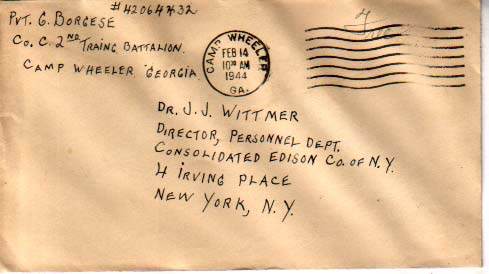 #42064432
PVT. G. BORGESE
CO. C. 2ND TRAING BATTALION.
CAMP WHEELER, GEORGIA
CAMP WHEELER
FEB 14
10 30 AM
1944
GA.
Free
DR. J. J. WITTMER
DIRECTOR, PERSONNEL DEPT.
CONSOLIDATED EDISON CO. OF N.Y.
4 IRVING PLACE
NEW YORK, N.Y.